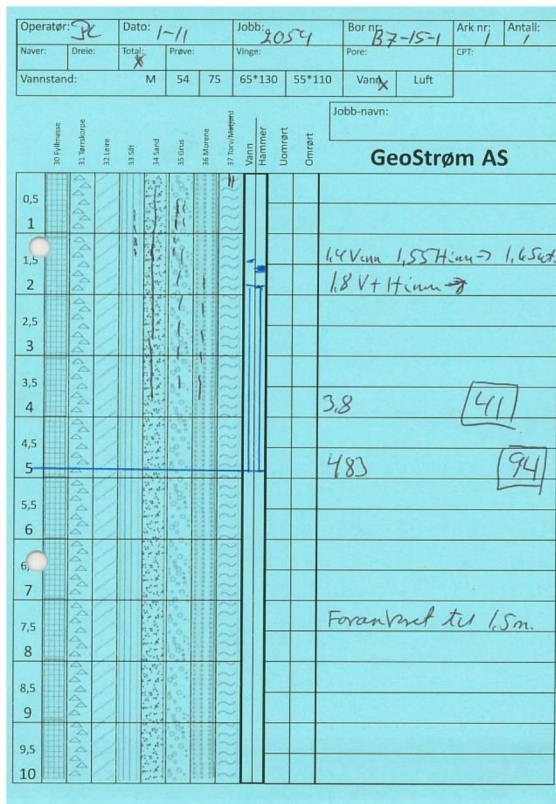 Operatør: Dato: 1-11 Jobb: 2054 Bor nr: B7-15-1 Ark nr: 1 Antall: 1
Naver: Dreie: Total: x Prøve: Vinge: Pore: CPT:
Vannstand: M 54 75 65*130 55*110 Vann x Luft
Jobb-navn:
GeoStrøm AS
30 Fyllmasse
31 Tørrskorpe
32 Leire
33 Silt
34 Sand
35 Grus
36 Morene
37 Torv/Matjord
Vann
Hammer
Uomrørt
Omrørt
0,5
1
1,5
1,4 Vann 1,55 H inn->
2
1,8 V + H inn ->
2,5
3
3,5
4
3,8 41
4,5
5
483 94
5,5
6
6,
7
7,5
Forankret til 1,5m.
8
8,5
9
9,5
10